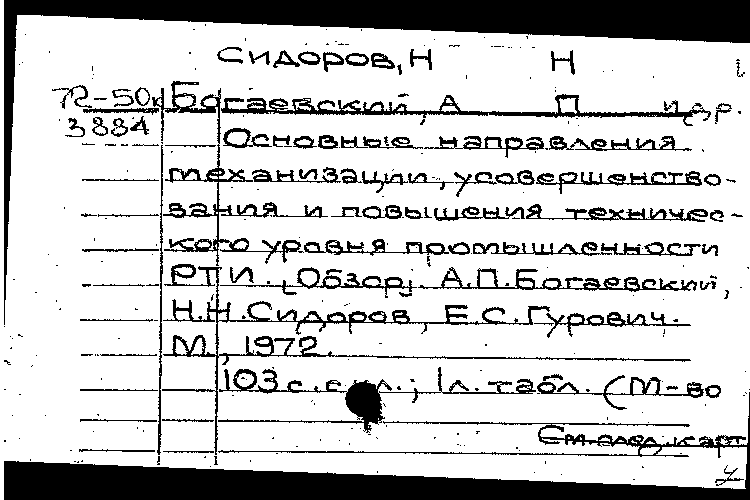 Сидоров, Н Н
72-50к Богаевский, А П и др.
3884 Основные направления
механизации, усовершенство-
вания и повышения техничес-
кого уровня промышленности
РТИ. [Обзор]. А.П.Богаевский,
Н.Н.Сидоров, Е.С.Гурович.
М., 1972.
103 с. с ил.; 1 л. табл. (М-во
См.след.карт